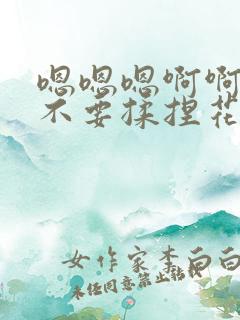 嗯嗯嗯啊啊
不要揉捏花
女作家李白白
未任同意禁止转载